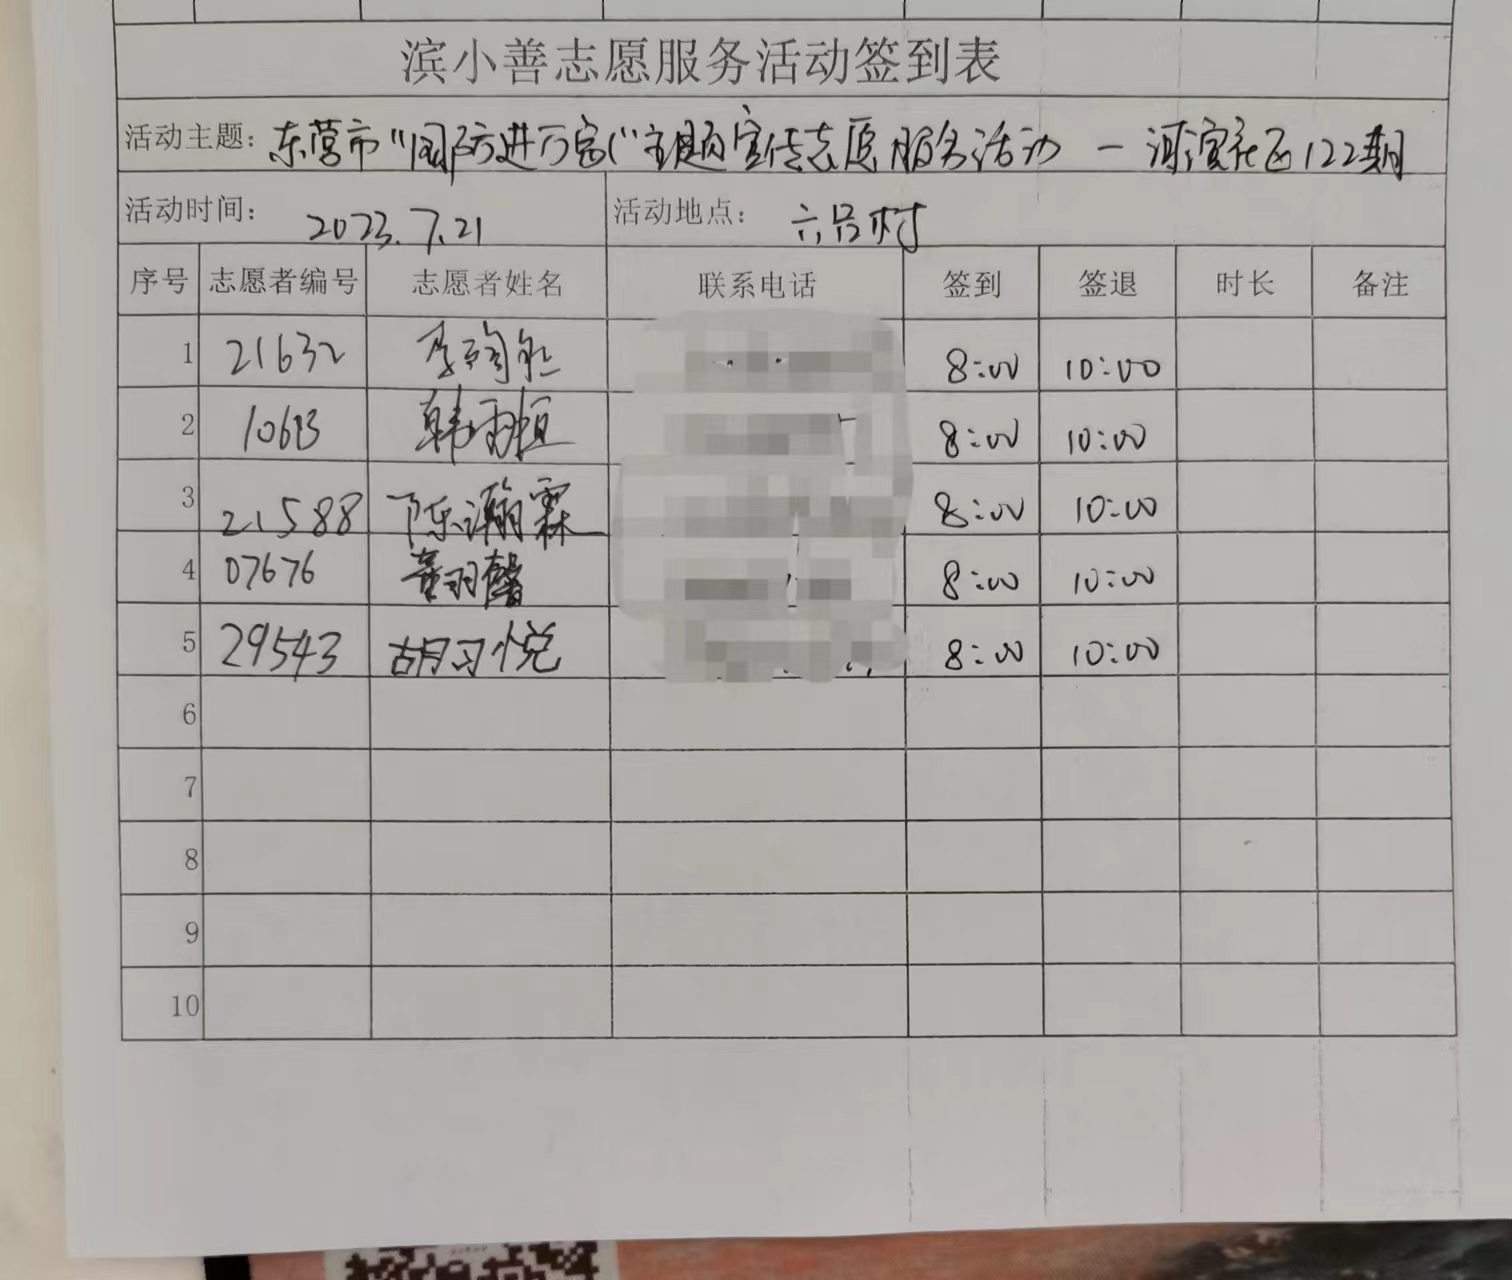 滨小善志愿服务活动签到表
活动主题：东营市“国防进万家”主题宣传志愿服务活动－河滨社区122期
活动时间：2023.7.21 活动地点：六号村
序号 志愿者编号 志愿者姓名 联系电话 签到 签退 时长 备注
1 21632 8:00 10:00
2 韩雨桓 8:00 10:00
3 21588 陈瀚霖 8:00 10:00
4 07676 董羽馨 8:00 10:00
5 29543 胡习悦 8:00 10:00
6
7
8
9
10